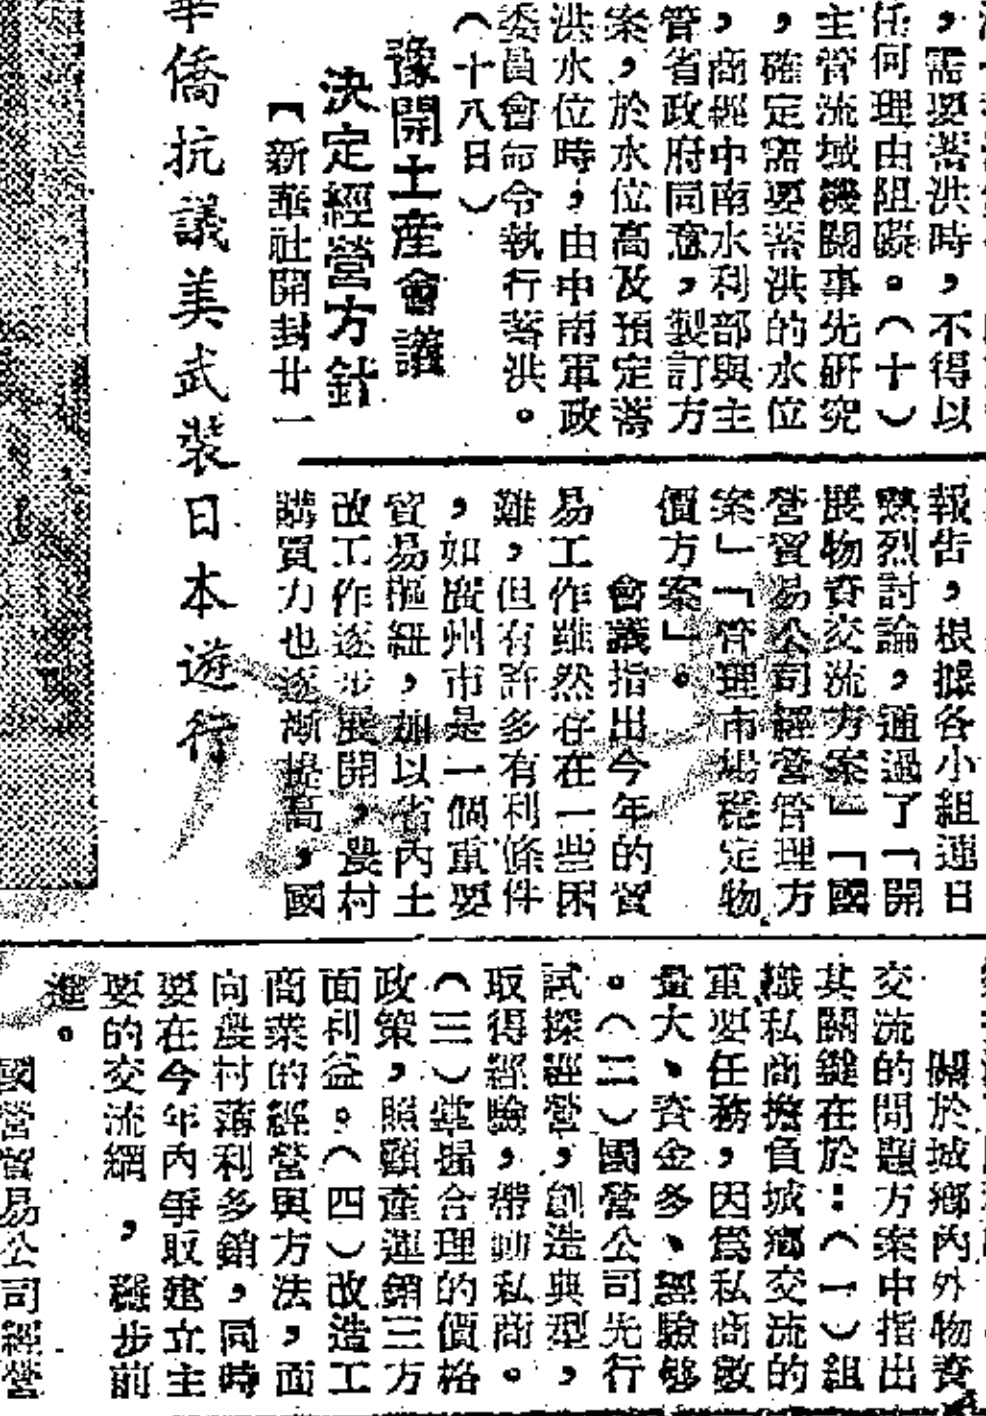 ，需要蓄洪時，不得以
任何理由阻礙。（十）
主管流域機關事先研究
，確定需要蓄洪的水位
，商經中南水利部與主
管省政府同意，製訂方
案，於水位高及預定蓄
洪水位時，由中南軍政
委員會命令執行蓄洪。
（十八日）
豫開土產會議
決定經營方針
【新華社開封廿一
華僑抗議美武裝日本遊行
報告，根據各小組連日
熱烈討論，通過了「開
展物資交流方案」「國
營貿易公司經營管理方
案」「管理市場穩定物
價方案」。
會議指出今年的貿
易工作雖然存在一些困
難，但有許多有利條件
，如廣州市是一個重要
貿易樞紐，加以省內土
改工作逐步展開，農村
購買力也逐漸提高，國
關於城鄉內外物資
交流的問題方案中指出
其關鍵在於：（一）組
織私商擔負城鄉交流的
重要任務，因為私商數
量大、資金多、經驗够
。（二）國營公司先行
試探經營，創造典型，
取得經驗，帶動私商。
（三）掌握合理的價格
政策，照顧產運銷三方
面利益。（四）改造工
商業的經營與方法，面
向農村薄利多銷，同時
要在今年內爭取建立主
要的交流網，穩步前
進。
國營貿易公司經營